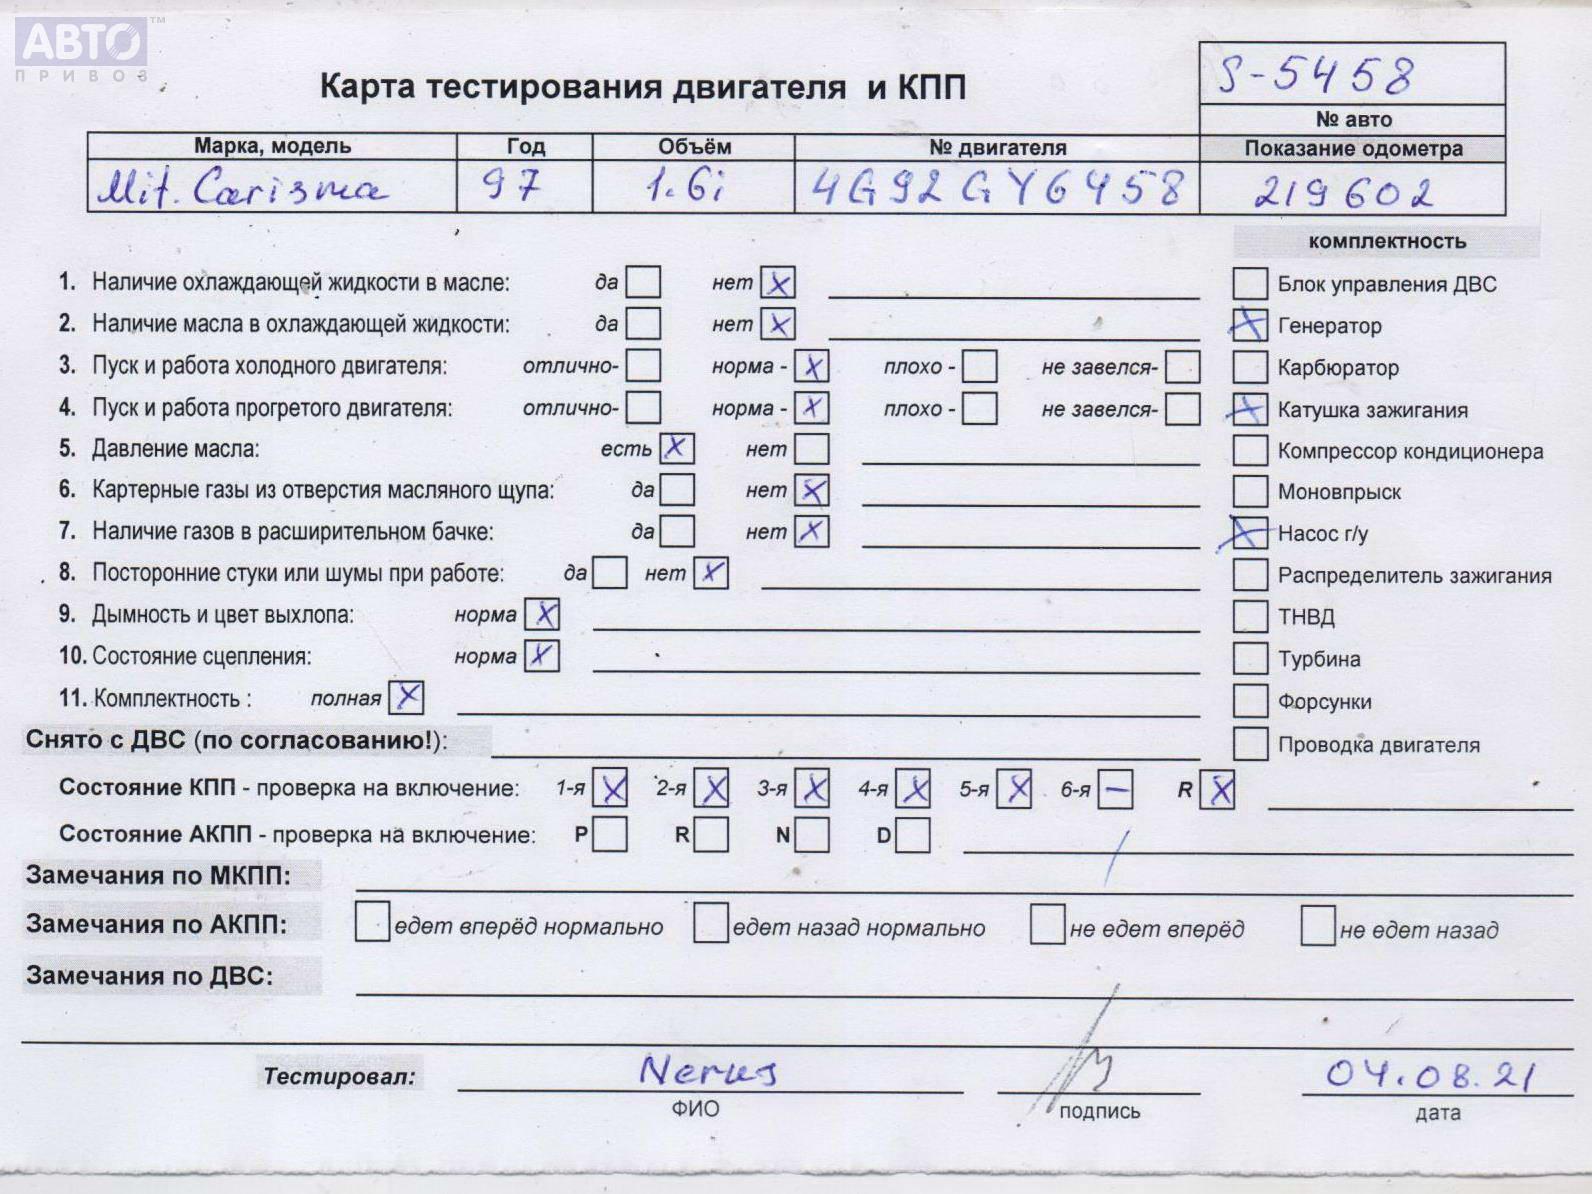 АВТО™
ПРИВОЗ
Карта тестирования двигателя и КПП
S-5458
№ авто
Марка, модель Год Объём № двигателя Показание одометра
Mit. Carisma 97 1.6i 4G92GY6458 219602
комплектность
1. Наличие охлаждающей жидкости в масле: да нет X
Блок управления ДВС
2. Наличие масла в охлаждающей жидкости: да нет X
X Генератор
3. Пуск и работа холодного двигателя: отлично- норма - X плохо - не завелся-
Карбюратор
4. Пуск и работа прогретого двигателя: отлично- норма - X плохо - не завелся-
X Катушка зажигания
5. Давление масла: есть X нет
Компрессор кондиционера
6. Картерные газы из отверстия масляного щупа: да нет X
Моновпрыск
7. Наличие газов в расширительном бачке: да нет X
X Насос г/у
8. Посторонние стуки или шумы при работе: да нет X
Распределитель зажигания
9. Дымность и цвет выхлопа: норма X
ТНВД
10. Состояние сцепления: норма X
Турбина
11. Комплектность : полная X
Форсунки
Снято с ДВС (по согласованию!):
Проводка двигателя
Состояние КПП - проверка на включение: 1-я X 2-я X 3-я X 4-я X 5-я X 6-я — R X
Состояние АКПП - проверка на включение: P R N D
Замечания по МКПП:
Замечания по АКПП: едет вперёд нормально едет назад нормально не едет вперёд не едет назад
Замечания по ДВС:
Тестировал: Nerus 04.08.21
ФИО подпись дата